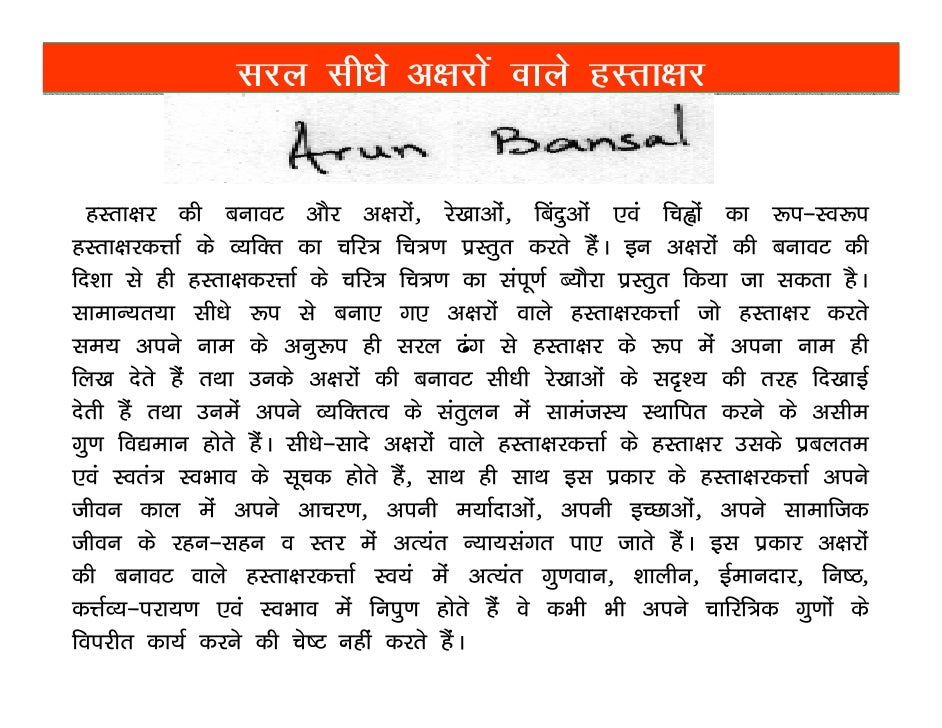 सरल सीधे अक्षरों वाले हस्ताक्षर
Arun Bansal
हस्ताक्षर की बनावट और अक्षरों, रेखाओं, बिंदुओं एवं चिह्नों का रूप-स्वरूप
हस्ताक्षरकर्त्ता के व्यक्ति का चरित्र चित्रण प्रस्तुत करते हैं। इन अक्षरों की बनावट की
दिशा से ही हस्ताक्षकरर्त्ता के चरित्र चित्रण का संपूर्ण ब्यौरा प्रस्तुत किया जा सकता है।
सामान्यतया सीधे रूप से बनाए गए अक्षरों वाले हस्ताक्षरकर्त्ता जो हस्ताक्षर करते
समय अपने नाम के अनुरूप ही सरल ढंग से हस्ताक्षर के रूप में अपना नाम ही
लिख देते हैं तथा उनके अक्षरों की बनावट सीधी रेखाओं के सदृश्य की तरह दिखाई
देती हैं तथा उनमें अपने व्यक्तित्व के संतुलन में सामंजस्य स्थापित करने के असीम
गुण विद्यमान होते हैं। सीधे-सादे अक्षरों वाले हस्ताक्षरकर्त्ता के हस्ताक्षर उसके प्रबलतम
एवं स्वतंत्र स्वभाव के सूचक होते हैं, साथ ही साथ इस प्रकार के हस्ताक्षरकर्त्ता अपने
जीवन काल में अपने आचरण, अपनी मर्यादाओं, अपनी इच्छाओं, अपने सामाजिक
जीवन के रहन-सहन व स्तर में अत्यंत न्यायसंगत पाए जाते हैं। इस प्रकार अक्षरों
की बनावट वाले हस्ताक्षरकर्त्ता स्वयं में अत्यंत गुणवान, शालीन, ईमानदार, निष्ठ,
कर्त्तव्य-परायण एवं स्वभाव में निपुण होते हैं वे कभी भी अपने चारित्रिक गुणों के
विपरीत कार्य करने की चेष्ट नहीं करते हैं।